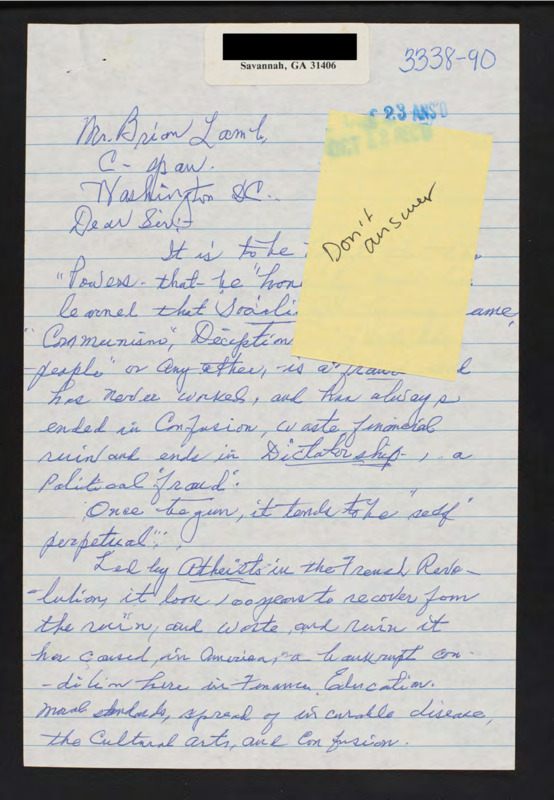 Savannah, GA 31406
3338-90
23 ANS'D
Mr. Brian Lamb,
C-span.
Washington DC..
Dear Sir:-
Don't
answer
It is to be
"Powers-that-be"
learned that "Sociali
ame
"Communism", Deception
people" or any other, is a
has never worked, and has always
ended in Confusion, waste financial
ruin and ends in Dictatorship, a
Political "fraud".
Once begun, it tends to be "self
perpetual".
Led by Atheists in the French Revo-
-lution, it took 100 years to recover from
the ruin, and waste, and ruin it
has caused, in America, a bankrupt con-
-dition here in Finance, Education.
moral standards, spread of incurable disease,
the Cultural arts, and Confusion.